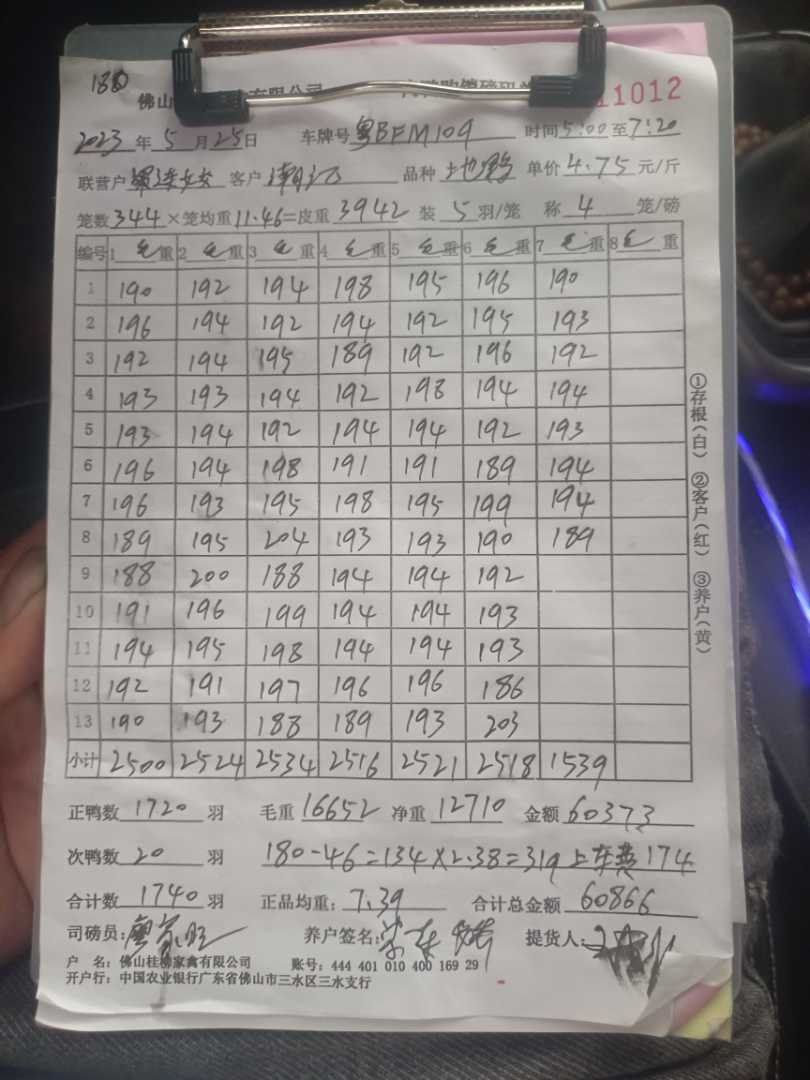 180
佛山 有限公司 11012
2023年5月25日 车牌号粤BFM109 时间5:00至7:20
联营户 客户 品种土地鸭 单价4.75元/斤
笼数344×笼均重11.46=皮重3942 装5羽/笼 称4笼/磅
编号 1毛重 2毛重 3毛重 4毛重 5毛重 6毛重 7毛重 8毛重
1 190 192 194 198 195 196 190
2 196 194 192 194 192 195 193
3 192 194 195 189 192 196 192
4 193 193 194 192 198 194 194
5 193 194 192 194 194 192 193
6 196 194 198 191 191 189 194
7 196 193 195 198 195 199 194
8 189 195 204 193 193 190 189
9 188 200 188 194 194 192
10 191 196 199 194 194 193
11 194 195 198 194 194 193
12 192 191 197 196 196 186
13 190 193 188 189 193 203
小计 2500 2524 2534 2516 2521 2518 1539
①存根(白) ②客户(红) ③养户(黄)
正鸭数1720羽 毛重16652 净重12710 金额60373
次鸭数20羽 180-46=134×2.38=319上车费174
合计数1740羽 正品均重:7.39 合计总金额60866
司磅员: 养户签名: 提货人:
户 名:佛山桂柳家禽有限公司 账号:444 401 010 400 169 29
开户行:中国农业银行广东省佛山市三水区三水支行